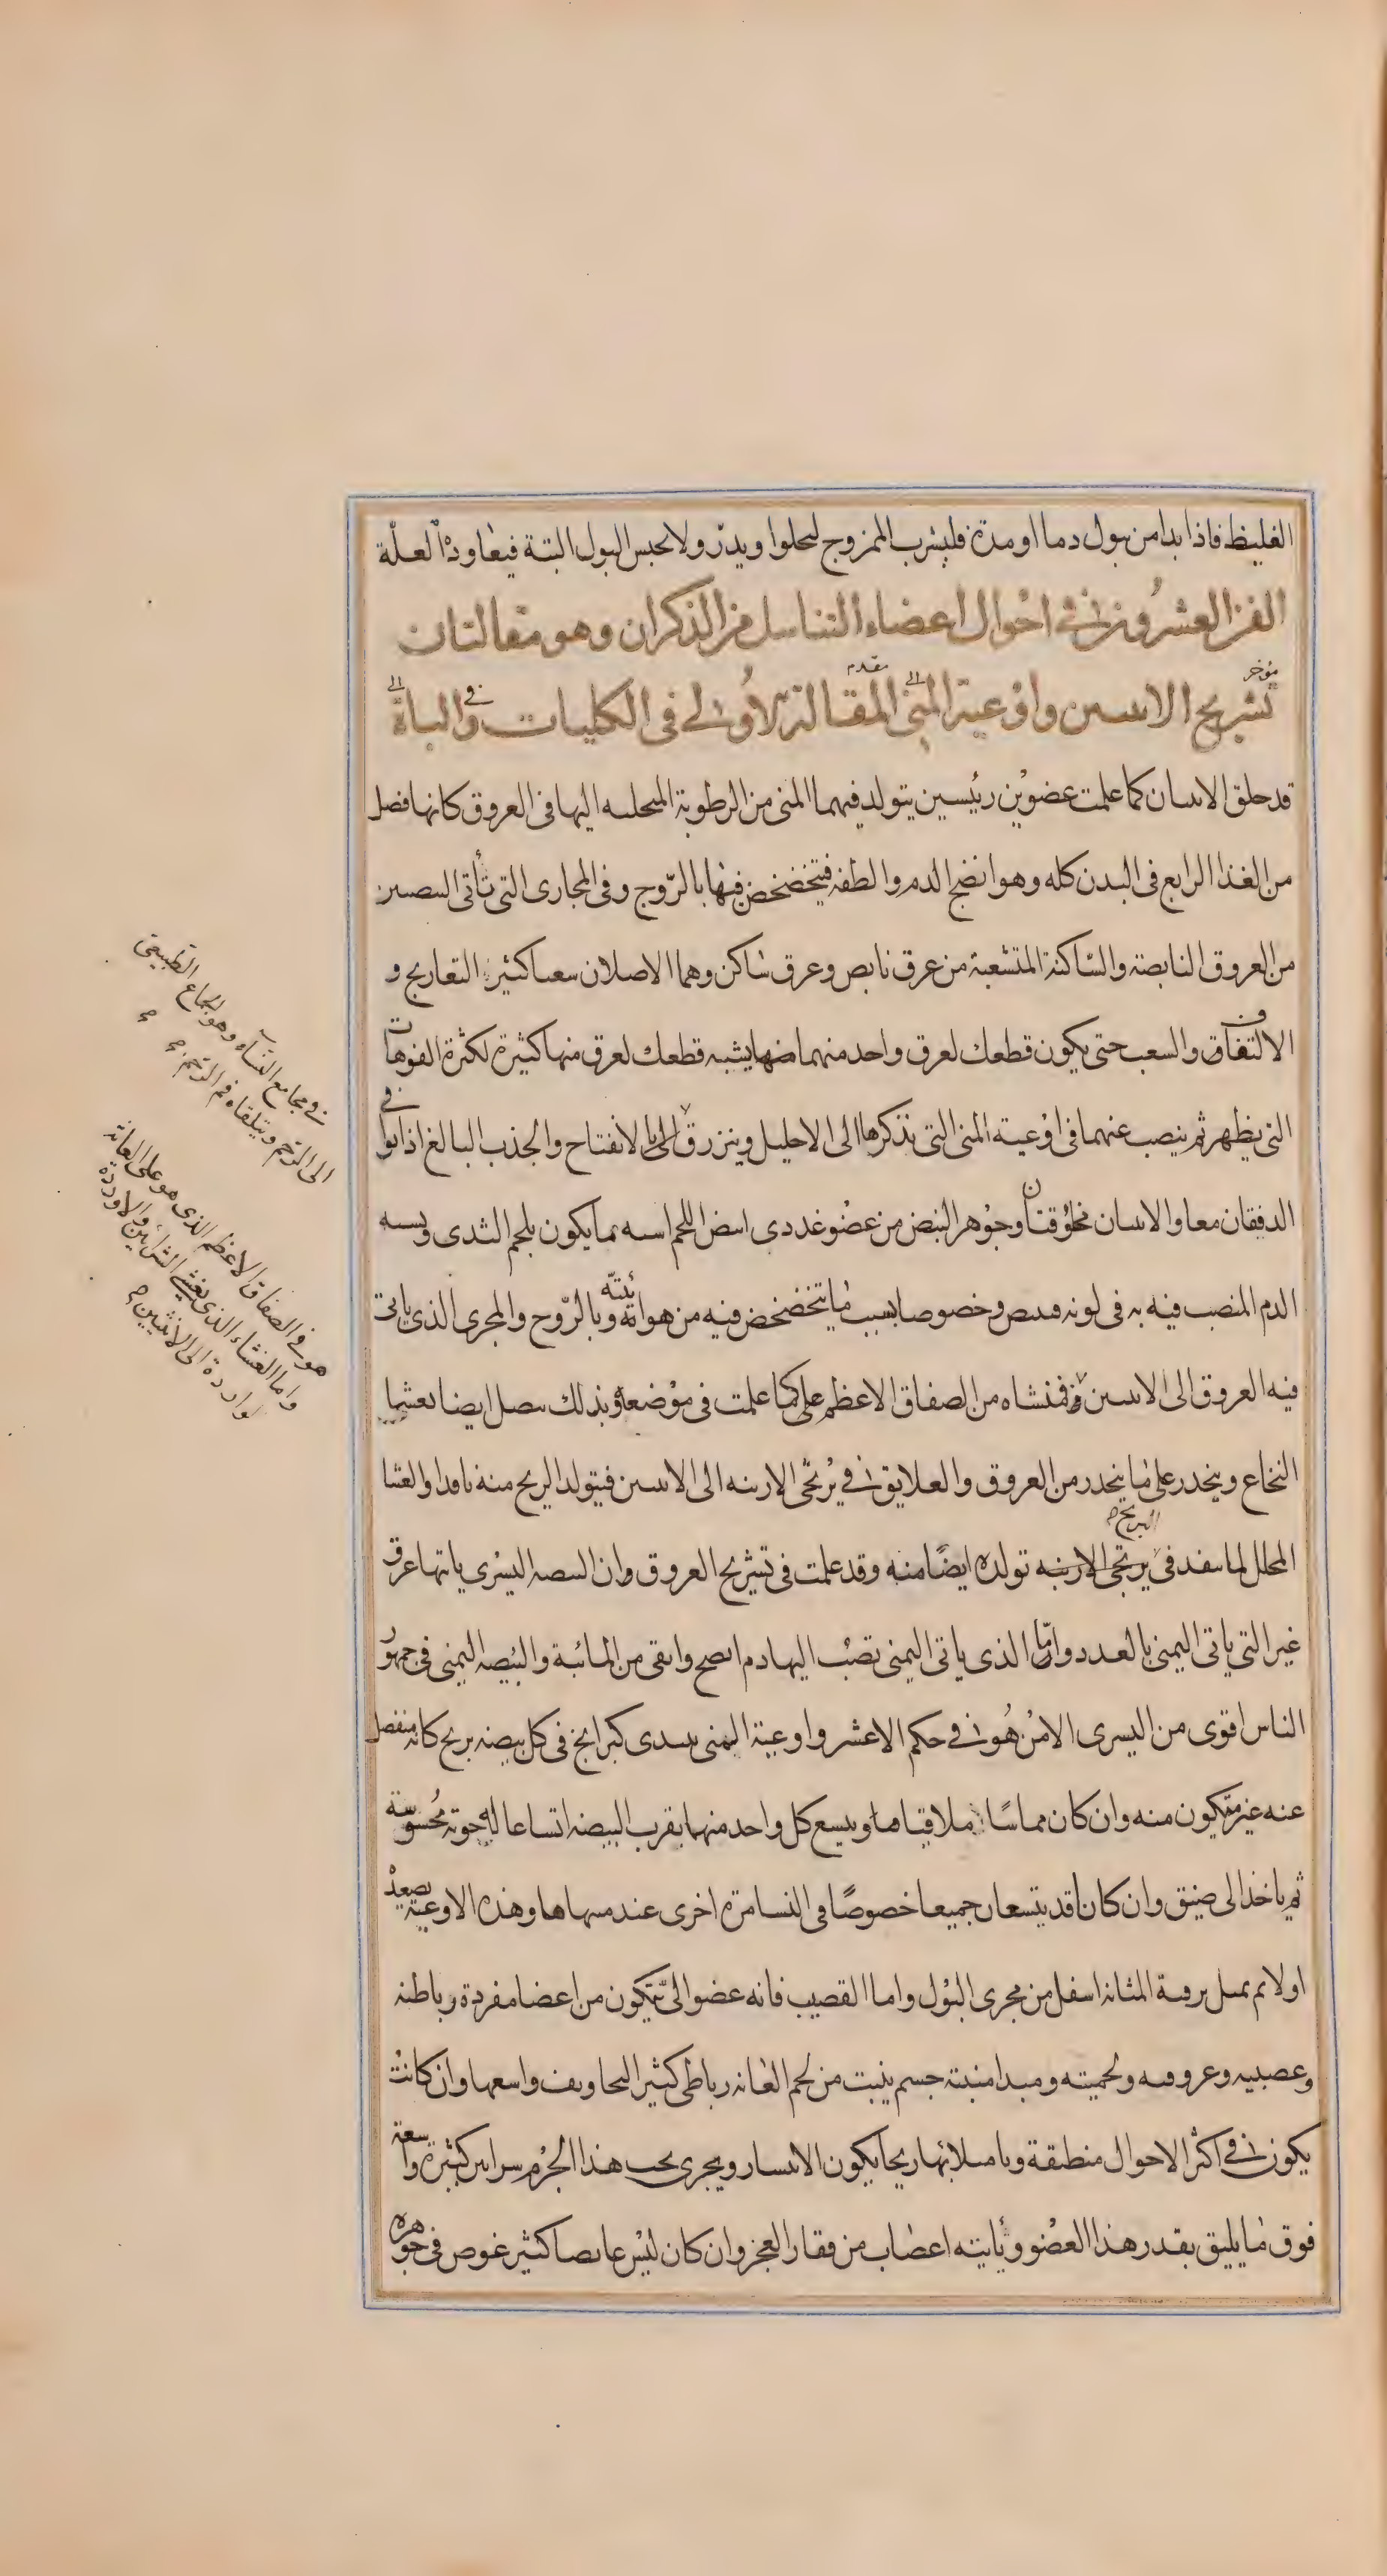 الغليظ فاذا بدا من بول دما او مدة فليشرب الممزوج ليحلوا ويدرّ ولا يحبس البول البتة فيعاوده العلّة
الفن العشرون في احوال اعضاء التناسل من الذكران وهو مقالتان
تشريح الانثيين واوعية المنى المقالة الاولى فى الكليات والباه
مؤخر
مقدم
قد خلق الانثيان كما علمت عضوين رئيسين يتولد فيهما المنى من الرطوبة المتحلبه اليها فى العروق كانها فضل
من الغذا الرابع فى البدن كله وهو انضج الدم والطفه فيتخضخض فيها بالرّوح وفى المجارى التى تأتى البيضتين
من العروق النابضة والساكنة المتشعبة من عرق نابض وعرق ساكن وهما الاصلان تشعبا كثير التعاريج و
الالتفاف والشعب حتى يكون قطعك لعرق واحد منهما يشبه قطعك لعرق منها كثيرة لكثرة الفوهات
التى يظهر ثم ينصب عنهما فى اوعية المنى التى نذكرها الى الاحليل وينزرق الانفتاح والجذب البالغ اذا
الدفقان معا والانثيان مخلوقتان وجوهر البيض من عضو غددى ابيض اللحم اشبه مما يكون بلحم الثدى ويشبه
الدم المنصب فيه به فى لونه فيبيض وخصوصا بسبب ما يتخضخض فيه من هوائيته وبالرّوح والمجرى الذى ياتى
فيه العروق الى الانثيين فمنشاه من الصفاق الاعظم على كما علمت فى موضعه وبذلك يتصل ايضا بغشا
النخاع وينحدر على ما ينحدر من العروق والعلايق فى بربخى الاربيه الى الانثيين فيتولد البربخ منه نافدا والغشا
البربخ
المحلل لما ينفذ فى بربخى الاربيه تولده ايضا منه وقد علمت فى تشريح العروق وان البيضه اليسرى ياتيها عرق
غير التى ياتى اليمنى بالعدد وامّا الذى ياتى اليمنى تصبّ اليها دم انضج وانقى من المائية والبيضه اليمنى فى جمهور
الناس اقوى من اليسرى الا من هو فى حكم الاعسر واوعية المنى يبتدى كبرابخ فى كل بيضه بربخ كانه منفصل
عنه غير متكون منه وان كان مماسًا ملاقيا لها ويتسع كل واحد منهما بقرب البيضه اتساعا له جوبة محسوسة
ثم ياخذ الى ضيق وان كانا قد يتسعان جميعا خصوصًا فى النسا مرة اخرى عند منتهاها وهذه الاوعية يصعد
اولا ثم يتصل برقبة المثانه اسفل من مجرى البول واما القضيب فانه عضو الىّ يتكون من اعضا مفردة رباطيه
وعصبيه وعروقيه ولحميته ومبدا منبته جسم ينبت من لحم العانه رباطى كثير التجاويف واسعها وان كانت
يكون فى اكثر الاحوال منطبقة وبامتلائها ريحا يكون الانتشار ويجرى تحت هذا الجرم شرايين كثيرة واسعة
فوق ما يليق بقدر هذا العضو وتأتيه اعصاب من فقار العجز وان كان ليس غايصا كثير غوص فى جوهره
فى مجامع النساء وهو الجماع الطبيعى
الى الرّحم ويتلقاه فم الرّحم
هو فى الصفاق الاعظم الذى هو على العانة
واما الغشاء الذى يغشى الشرايين والاوردة
الواردة الى الانثيين